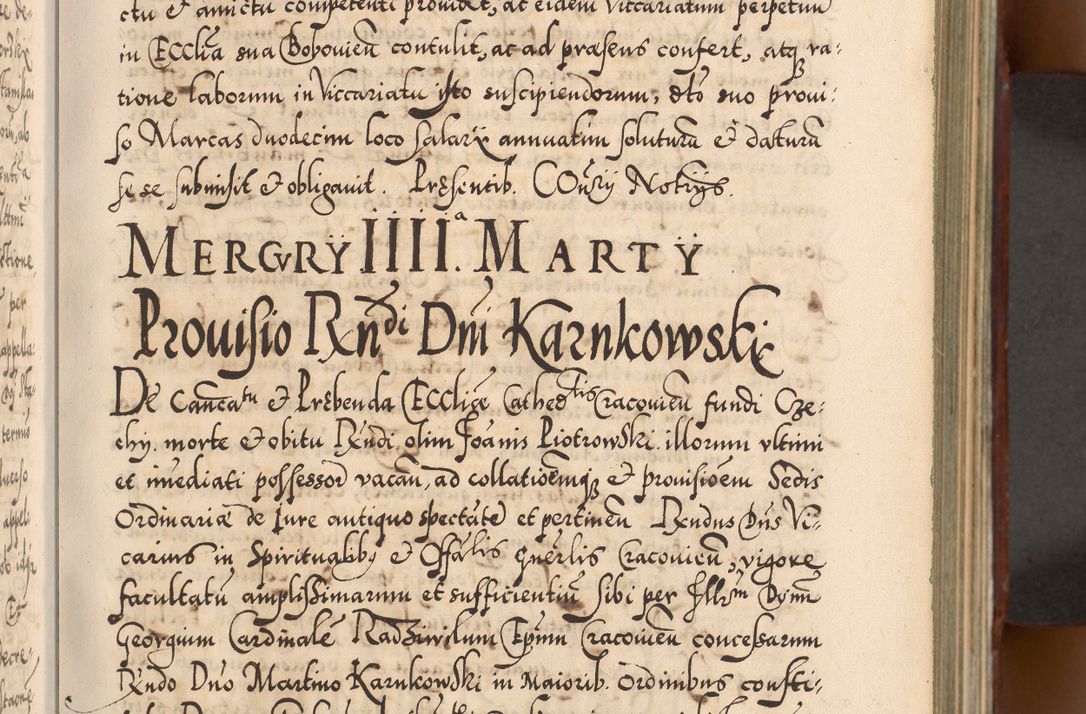 ctu & amictu competenti providet, ac eidem Viccariatum perpetuu
in Ecclia sua Bobovien contulit, ac ad præsens confert, atq ra-
tione laborum in Viccariatu isto suscipiendorum, sto suo provi-
so Marcas duodecim loco salarÿ annuatim soluturũ & daturũ
se se submisit & obligavit. Presentib. COurÿ Notrÿs.
MERCVRŸ IIII.ª MARTŸ
Provisio Rndi Dni Karnkowski
De Canũcatu & Prebenda Ecclię Cathedtis Cracovien fundi Cze-
chy. morte & obitu Rndi olim Joãnis Piotrowski illorum vltimi
et imediati possessor vacan, ad collationemq & provisioem Sedis
Ordinariæ de Jure antiquo spectante et pertinen Rndus Dns Vi-
carius in Spiritualibs & Offalis Gnerlis Cracovien, vigore
facultatũ amplissimarum et sufficientiũ sibi per Illrm Dnm
Georgium Cardinale Radziwilum Epum Cracovien concessarum
Rndo Dno Martino Karnkowski in Maiorib. Ordinibus consti-